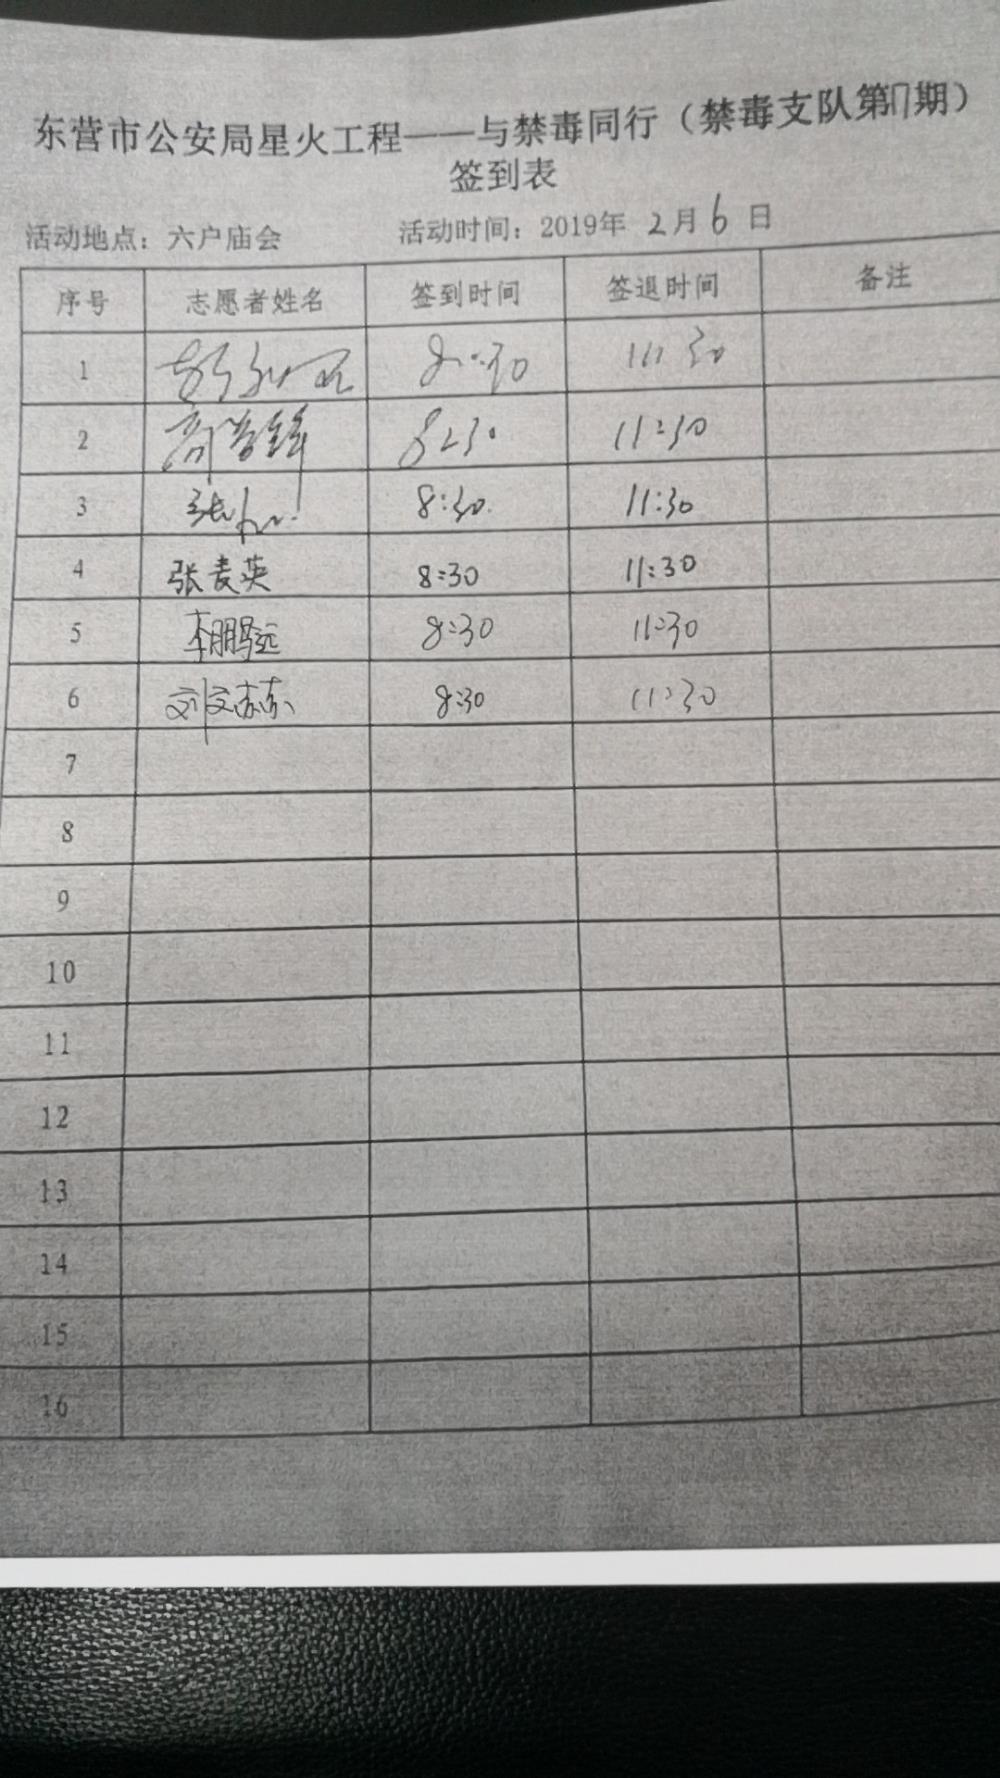 东营市公安局星火工程——与禁毒同行（禁毒支队第 期）
签到表
活动地点：六户庙会 活动时间：2019年 2月6日
序号 志愿者姓名 签到时间 签退时间 备注
1 8:30 11:30
2 8:30 11:30
3 8:30 11:30
4 张麦英 8:30 11:30
5 李鹏远 8:30 11:30
6 8:30 11:30
7
8
9
10
11
12
13
14
15
16